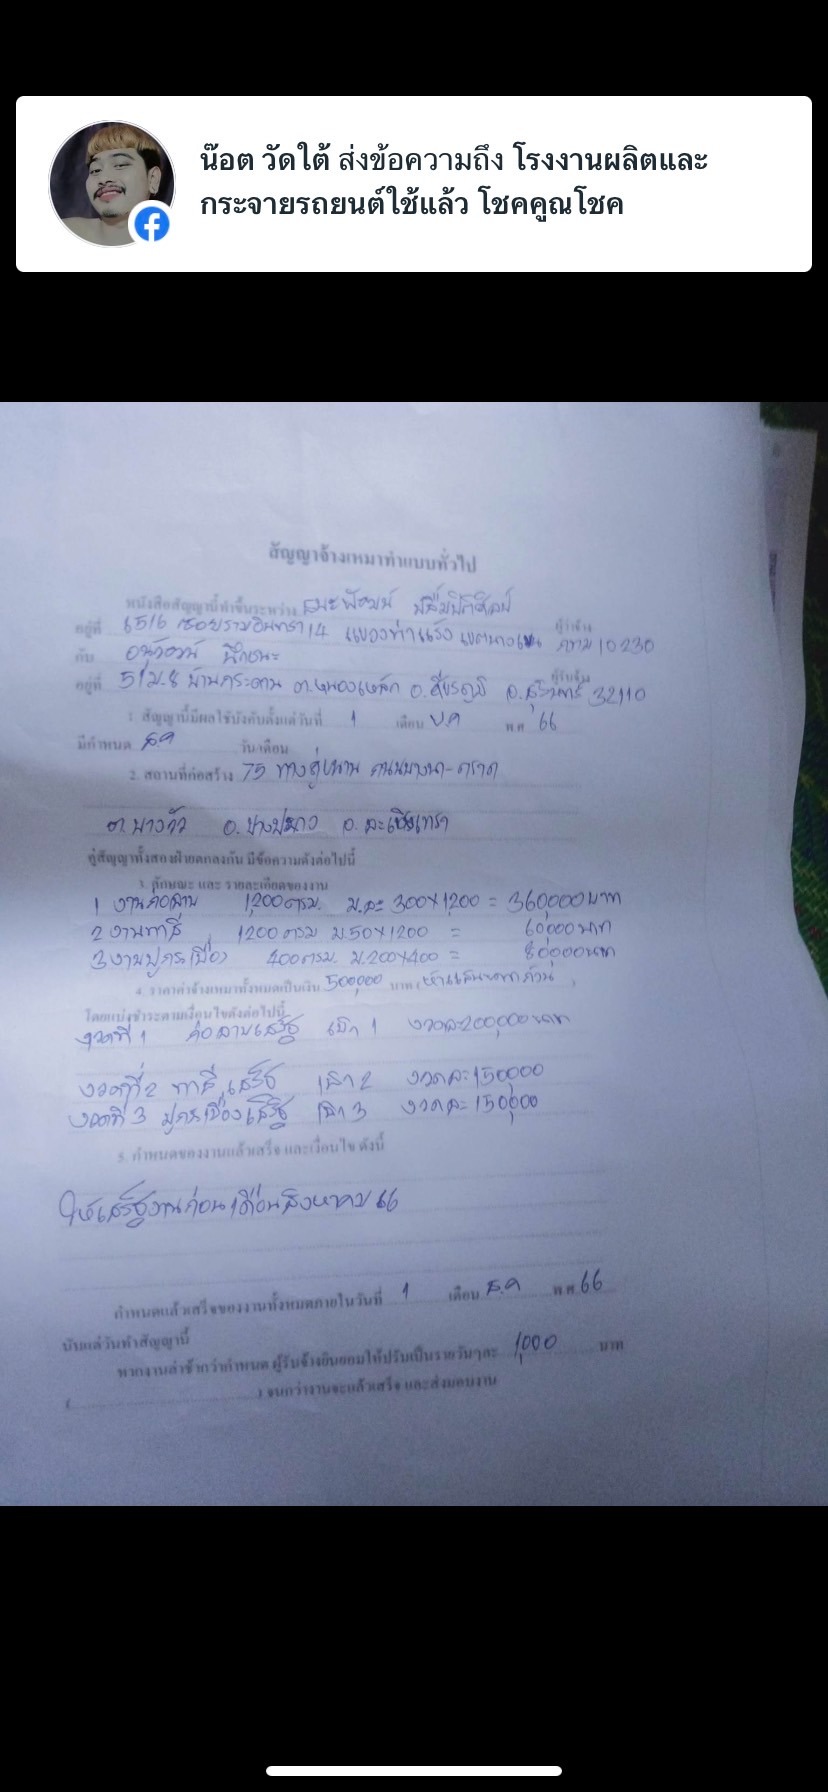 น๊อต วัดใต้ ส่งข้อความถึง โรงงานผลิตและ
กระจายรถยนต์ใช้แล้ว โชคคูณโชค
สัญญาจ้างเหมาทำแบบทั่วไป
หนังสือสัญญานี้ทำขึ้นระหว่าง
อยู่ที่ 65/6 ซอยรามอินทรา 14 แขวงท่าแร้ง เขตบางเขน กทม 10230 ผู้ว่าจ้าง
กับ
อยู่ที่ 51 ม.8 บ้านกระดาน ต.หนองเหล็ก อ.ศีขรภูมิ จ.สุรินทร์ 32110 ผู้รับจ้าง
1. สัญญานี้มีผลใช้บังคับตั้งแต่วันที่ 1 เดือน พ.ศ 66
มีกำหนด ส.ค วัน/เดือน
2. สถานที่ก่อสร้าง 75 ทางคู่ขนาน ถนนบางนา-ตราด
ต.บางวัว อ.บางปะกง จ.ฉะเชิงเทรา
คู่สัญญาทั้งสองฝ่ายตกลงกัน มีข้อความดังต่อไปนี้
3. ลักษณะ และ รายละเอียดของงาน
1 งานก่อฉาบ 1,200 ตรม. ม.ละ 300×1,200 = 360,000 บาท
2 งานทาสี 1200 ตรม ม.50×1200 = 60,000 บาท
3 งานปูกระเบื้อง 400 ตรม. ม.200×400 = 80,000 บาท
4. ราคาค่าจ้างเหมาทั้งหมดเป็นเงิน 500,000 บาท (ห้าแสนบาทถ้วน)
โดยแบ่งชำระตามเงื่อนไขดังต่อไปนี้
งวดที่ 1 ก่อฉาบเสร็จ เบิก 1 งวดละ 200,000 บาท
งวดที่ 2 ทาสีเสร็จ เบิก 2 งวดละ 150,000
งวดที่ 3 ปูกระเบื้องเสร็จ เบิก 3 งวดละ 150,000
5. กำหนดของงานแล้วเสร็จ และเงื่อนไข ดังนี้
ให้เสร็จงานก่อนเดือนสิงหาคม 66
กำหนดแล้วเสร็จของงานทั้งหมดภายในวันที่ 1 เดือน ส.ค พ.ศ. 66
นับแต่วันทำสัญญานี้
หากงานล่าช้ากว่ากำหนด ผู้รับจ้างยินยอมให้ปรับเป็นรายวันๆละ 1,000 บาท
( ) จนกว่างานจะแล้วเสร็จ และส่งมอบงาน